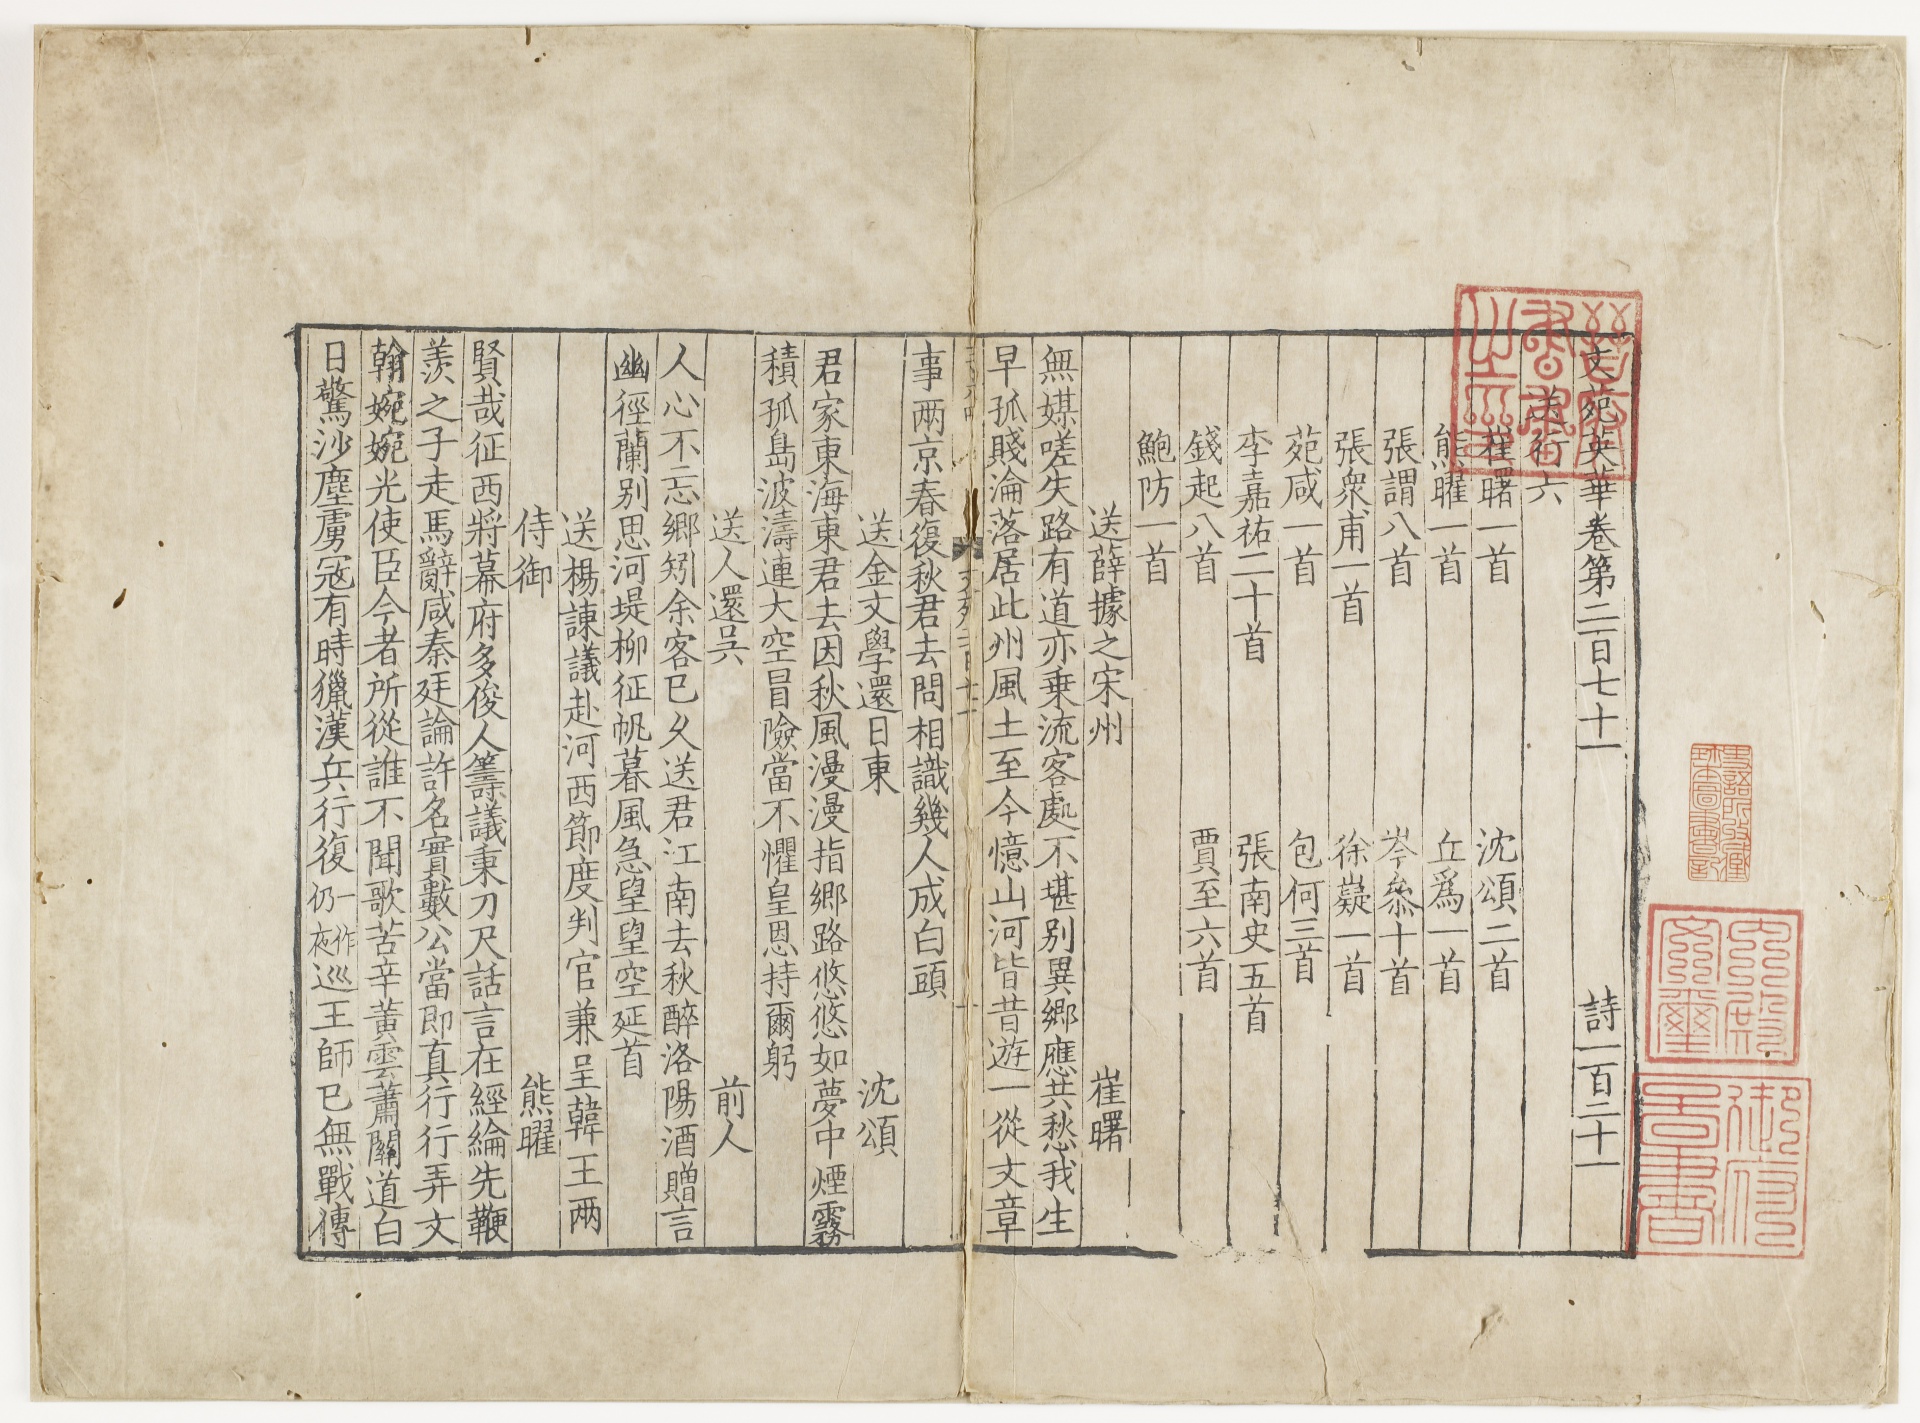 文苑英華卷第二百七十一 詩一百二十一
送行六
崔曙一首 沈頌二首
熊曜一首 丘爲一首
張謂八首 岑參十首
張衆甫一首 徐嶷一首
苑咸一首 包何三首
李嘉祐二十首 張南史五首
錢起八首 賈至六首
鮑防一首
送薛據之宋州 崔曙
無媒嗟失路有道亦乗流客處不堪别異鄉應共愁我生
早孤賤淪落居此州風土至今憶山河皆昔遊一從文章
事兩京春復秋君去問相識幾人成白頭
送金文學還日東 沈頌
君家東海東君去因秋風漫漫指鄉路悠悠如夢中煙霧
積孤島波濤連大空冒險當不懼皇恩持爾躬
送人還吳 前人
人心不忘鄉矧余客已久送君江南去秋醉洛陽酒贈言
幽徑蘭别思河堤柳征帆暮風急望望空延首
送楊諫議赴河西節度判官兼呈韓王兩
侍御 熊曜
賢哉征西將幕府多俊人籌議秉刀尺話言在經綸先鞭
羨之子走馬辭咸秦廷論許名實數公當即真行行弄文
翰婉婉光使臣今者所從誰不聞歌苦辛黃雲蕭關道白
日驚沙塵虜寇有時獵漢兵行復仍一作夜巡王師已無戰傳